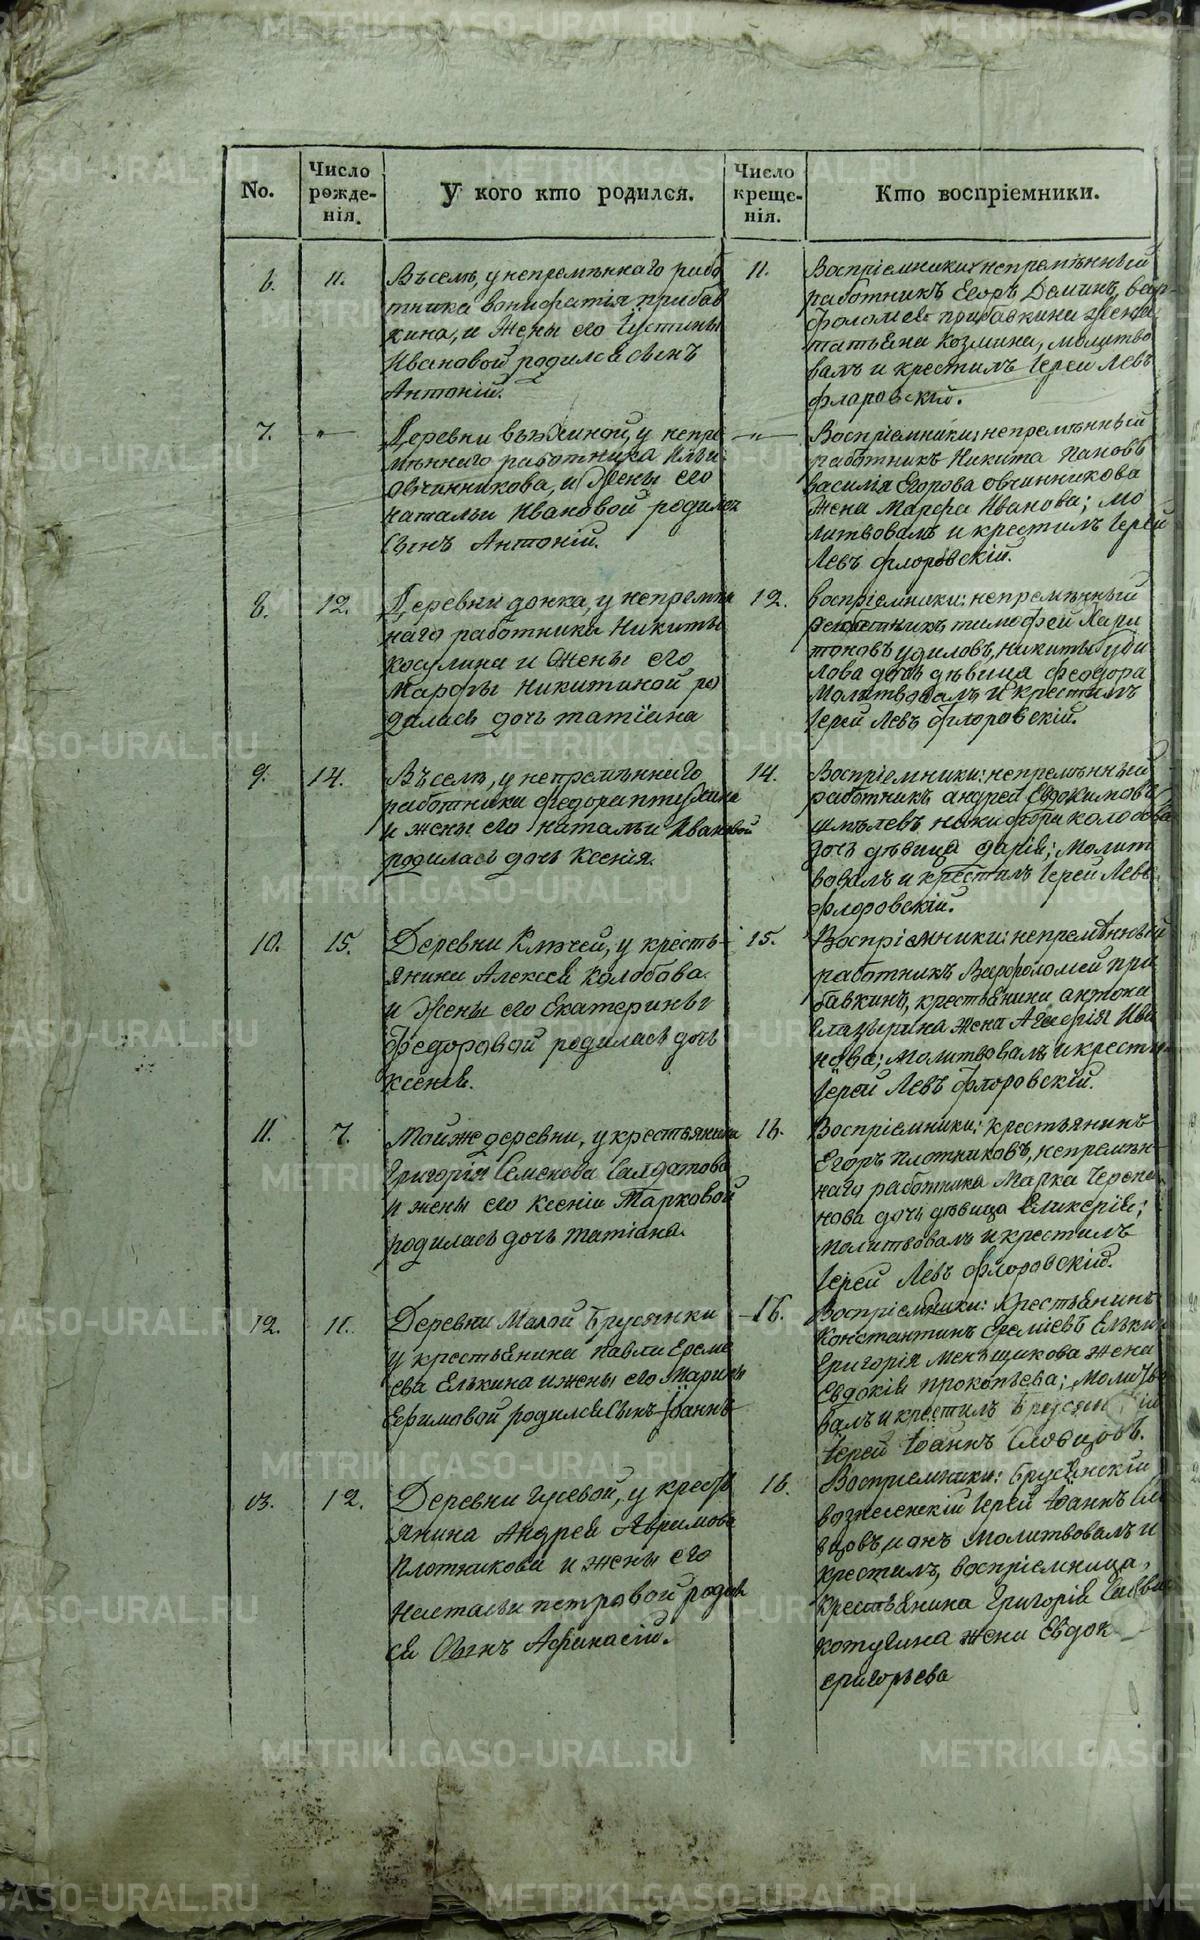 No.
Число рожде- нія.
У кого кто родился.
Число креще- нія.
Кто воспріемники.
6.
11.
Въ селѣ, у непремѣннаго рабо
тника Вонифатія Прибав
кина, и жены его Іустины
Ивановой родился сынъ
Антоній.
11.
Воспріемники: непремѣнный
работникъ Егоръ Деминъ, Вар-
фоломея Прибавкина жена
Татьяна Козмина, молитво
валъ и крестилъ Іерей Левъ
Флоровскій.
7.
—"—
Деревни
у непре
мѣннаго работника Ильи
Овчинникова, и жены его
Натальи Ивановой родился
сынъ Антоній.
—"—
Воспріемники: непремѣнный
работникъ Никита Пановъ
Василія Егорова Овчинникова
жена Марфа Иванова; мо
литвовалъ и крестилъ Іерей
Левъ Флоровскій.
8.
12.
Деревни
у непремѣн
наго работника Никиты
Косулина и жены его
Марфы Никитиной ро
дилась дочь Татіана
12.
Воспріемники: непремѣнный
работникъ Тимофей Хари
тоновъ Удиловъ, Никиты Уди
лова дочь дѣвица Феодора
молитвовалъ и крестилъ
Іерей Левъ Флоровскій.
9.
14.
Въ селѣ, у непремѣннаго
работника Федора Птухина
и жены его Натальи Ивановой
родилась дочь Ксенія.
14.
Воспріемники: непремѣнный
работникъ Андрей Евдокимовъ
Шмѣлевъ, Никифора Колобова
дочь дѣвица Дарія; молит
вовалъ и крестилъ Іерей Левъ
Флоровскій.
10.
15.
Деревни Ключей, у кресть-
янина Алексея Колобова
и жены его Екатерины
Федоровой родилась дочь
Ксенія.
15.
Воспріемники: непремѣнный
работникъ Варфоломей При
бавкинъ, крестьянина Антона
Глазырина жена
Ива
нова; молитвовалъ и крестилъ
Іерей Левъ Флоровскій.
11.
7.
Той же деревни, у крестьянина
Григорія Семенова Салдатова
и жены его Ксеніи Марковой
родилась дочь Татіана.
16.
Воспріемники: крестьянинъ
Егоръ Плотниковъ, непремѣн-
наго работника Марка Черепа
нова дочь дѣвица Гликерія;
молитвовалъ и крестилъ
Іерей Левъ Флоровскій.
12.
11.
Деревни Малой Брусянки
у крестьянина Павла Ереме
ева Елькина и жены его Марины
Ефимовой родился сынъ Іоаннъ
16.
Воспріемники: крестьянинъ
Константинъ Еремѣевъ Елькинъ
Григорія Меньщикова жена
Евдокія Прокопьева; молитво
валъ и крестилъ
Іерей Іоаннъ Словцовъ.
13.
12.
Деревни Гусевой, у кресть
янина Андрея
Плотникова и жены его
Настасьи Петровой родил
ся сынъ Афанасій.
16.
Воспріемники: Брусянскій
Вознесенскій Іерей Іоаннъ Сло
вцовъ, и онъ молитвовалъ и
крестилъ, воспріемница,
крестьянина Григорія
жена Евдок
Григорьева
METRIKI.GASO-URAL.RU